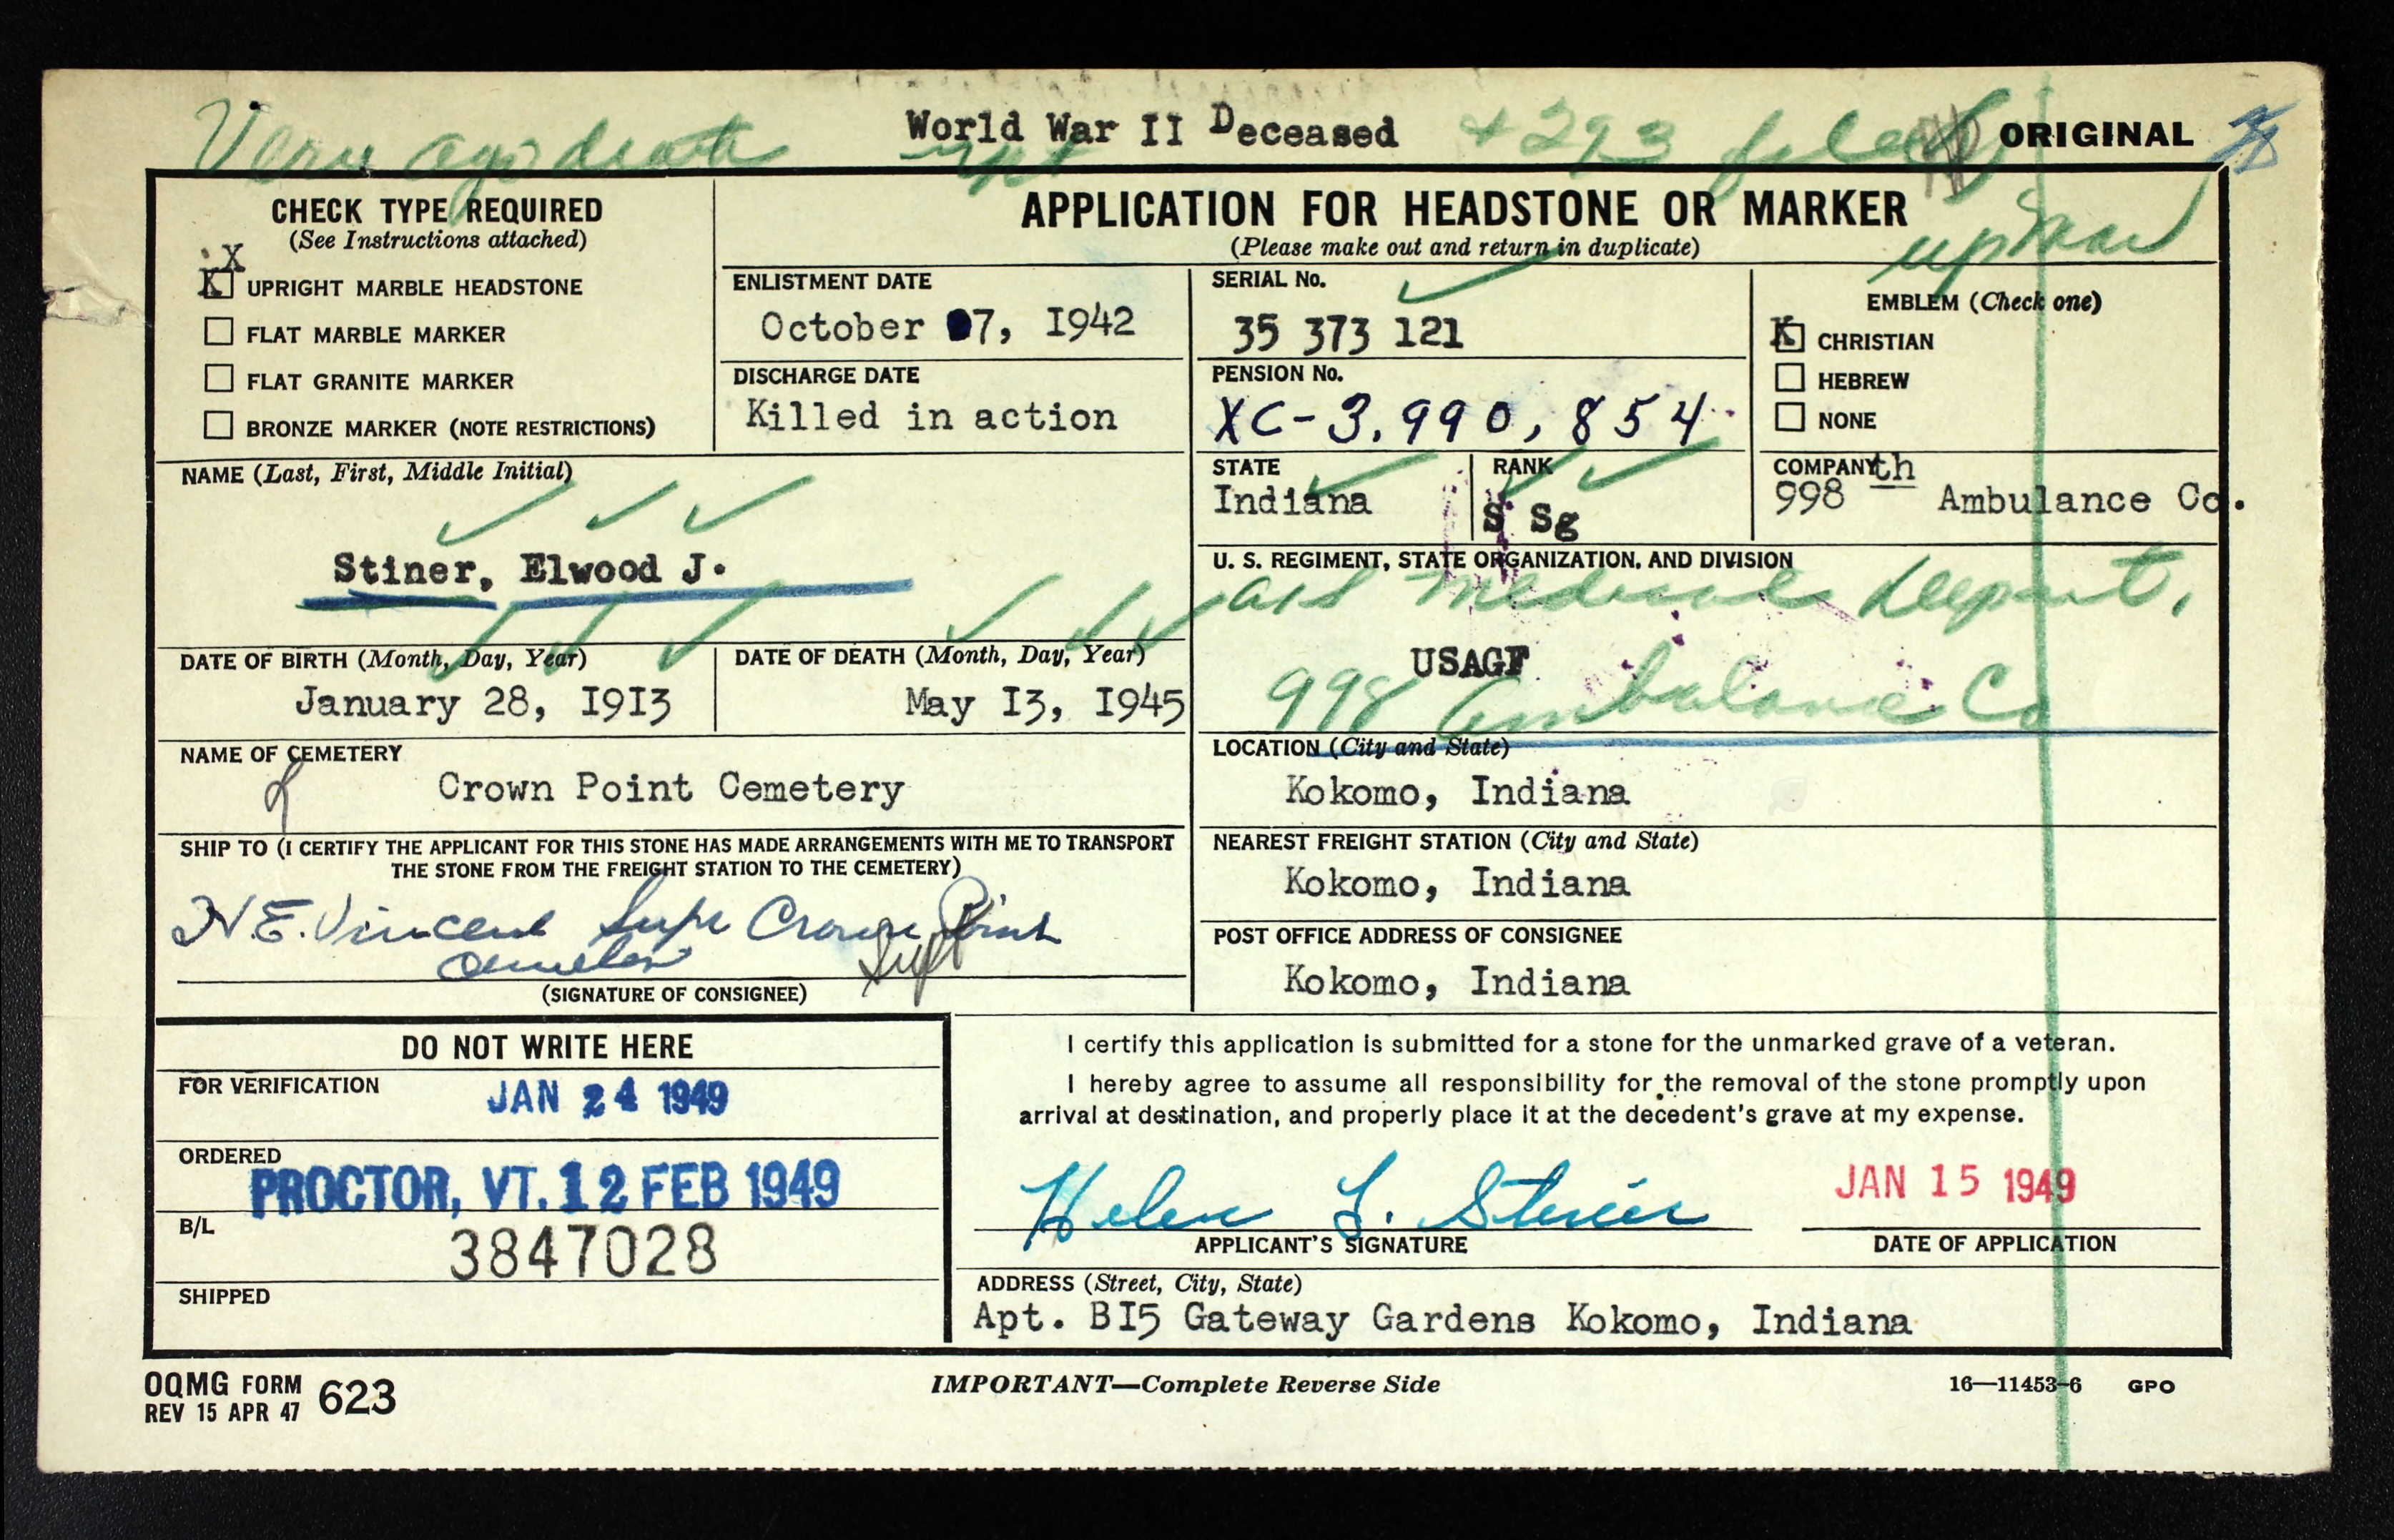 World War II Deceased
ORIGINAL
CHECK TYPE REQUIRED
(See Instructions attached)
X
X UPRIGHT MARBLE HEADSTONE
FLAT MARBLE MARKER
FLAT GRANITE MARKER
BRONZE MARKER (NOTE RESTRICTIONS)
APPLICATION FOR HEADSTONE OR MARKER
(Please make out and return in duplicate)
ENLISTMENT DATE
October 07, I942
DISCHARGE DATE
Killed in action
SERIAL No.
35 373 121
PENSION No.
XC-3,990,854
EMBLEM (Check one)
X CHRISTIAN
HEBREW
NONE
NAME (Last, First, Middle Initial)
Stiner, Elwood J.
STATE
Indiana
RANK
S Sg
COMPANY
998th Ambulance Co.
U. S. REGIMENT, STATE ORGANIZATION, AND DIVISION
Medical Depart.
USAGF
998 Ambulance Co
DATE OF BIRTH (Month, Day, Year)
January 28, I9I3
DATE OF DEATH (Month, Day, Year)
May I3, I945
NAME OF CEMETERY
Crown Point Cemetery
LOCATION (City and State)
Kokomo, Indiana
SHIP TO (I CERTIFY THE APPLICANT FOR THIS STONE HAS MADE ARRANGEMENTS WITH ME TO TRANSPORT
THE STONE FROM THE FREIGHT STATION TO THE CEMETERY)
H.E. Vincent Supt Crown Point
Cemetery
Supt
(SIGNATURE OF CONSIGNEE)
NEAREST FREIGHT STATION (City and State)
Kokomo, Indiana
POST OFFICE ADDRESS OF CONSIGNEE
Kokomo, Indiana
DO NOT WRITE HERE
FOR VERIFICATION
JAN 24 1949
ORDERED
PROCTOR, VT. 12 FEB 1949
B/L
3847028
SHIPPED
I certify this application is submitted for a stone for the unmarked grave of a veteran.
I hereby agree to assume all responsibility for the removal of the stone promptly upon
arrival at destination, and properly place it at the decedent's grave at my expense.
Helen L. Stiner
APPLICANT'S SIGNATURE
JAN 15 1949
DATE OF APPLICATION
ADDRESS (Street, City, State)
Apt. BI5 Gateway Gardens Kokomo, Indiana
OQMG FORM 623
REV 15 APR 47
IMPORTANT—Complete Reverse Side
16—11453-6 GPO